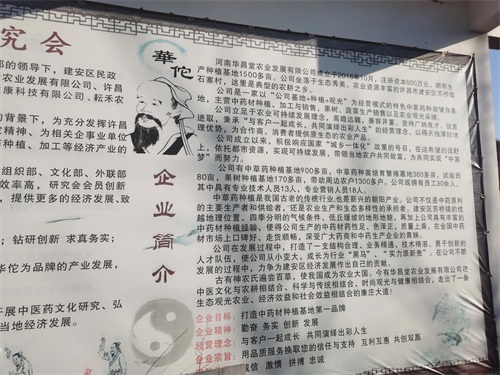 究会
的领导下，建安区民政
农业发展有限公司、许昌
康科技有限公司、耘禾农
背景下，为充分发挥许昌
精神、为相关企事业单位
种植、加工等经济产业的
组织部、文化部、外联部
效率高，研究会员创新
，提供更多的经济发展、致
；钻研创新 求真务实；
华佗为品牌的产业发展，
展中医药文化研究、弘
当地经济发展。
華佗
企业简介
河南华昌堂农业发展有限公司成立于2016年10月，注册资本600万元，拥有生
产种植基地1500多亩。公司坐落于生态秀美，农业资源丰富的许昌市建安区苏桥镇
石寨村，这里是典型的农耕之乡。
公司是一家以“公司基地+种植+观光”为经营模式的特色中草药种苗繁育基
地，主营中药材种植、加工与销售，果树、蔬菜生产与销售以及农业观光采摘。
公司立足于农业可持续发展理念，高瞻远瞩，兼容并蓄，坚持“勤奋、务实、创新、
进取，秉承“与客户一起成长，共同演绎出彩人生”的经营理念，以倚天险厚德的
理优势，为合作商、消费者提供原生态的农业产品。
公司成立以来，积极响应国家“城乡一体化”政策的号召，在访希望的田野
上，依托都市资源，实现可持续发展，带领当地农户共同致富，为共同实现“中国
梦”而努力。
公司有中草药种植基地900多亩，中草药种苗培育繁殖基地360多亩，试验田
80亩，果树种植基地170多亩，带动周边农户1300多户。公司现拥有员工30余人，
其中具有专业技术人员13人，专业营销人员18人。
中草药种植是我国古老的传统行业,也是新兴的朝阳产业。公司不仅是中药原料
的主要生产者和供给者，还是农业生产和生态多样性的承担者。建安区苏桥镇的优
越地理位置、四季分明的气候条件、低丘缓坡的地形地貌，再加上公司具有丰富的
中药材种植经验，使得公司生产的中药材药性足、色泽正、质量上乘，在全国中药
材市场上口碑好、走货顺畅，深受广大药商和中药生产企业的青睐。
公司在发展过程中，打造了一支结构合理、业务精通、技术精湛、勇于创新的
人才队伍，使公司从小变大，成长为行业“黑马”、“实力派新贵”。公司不断
发展的过程中，力争为建安区经济发展作出自己的贡献。
古有神农氏遍尝百草，使我国成为农业大国。今有华昌堂农业发展有限公司把
中医文化与农耕相结合、科学与传统相结合、时尚观光与健康相结合，走出了一条
生态观光农业、经济效益和社会效益相结合的康庄大道！
企业目标：打造中药材种植基地第一品牌
企业精神：勤奋 务实 创新 发展
经营理念：与客户一起成长 共同演绎出彩人生
企业宗旨：用品质服务换取您的信任与支持 互利互惠 共创双赢
诚信 激情 拼搏 忠诚